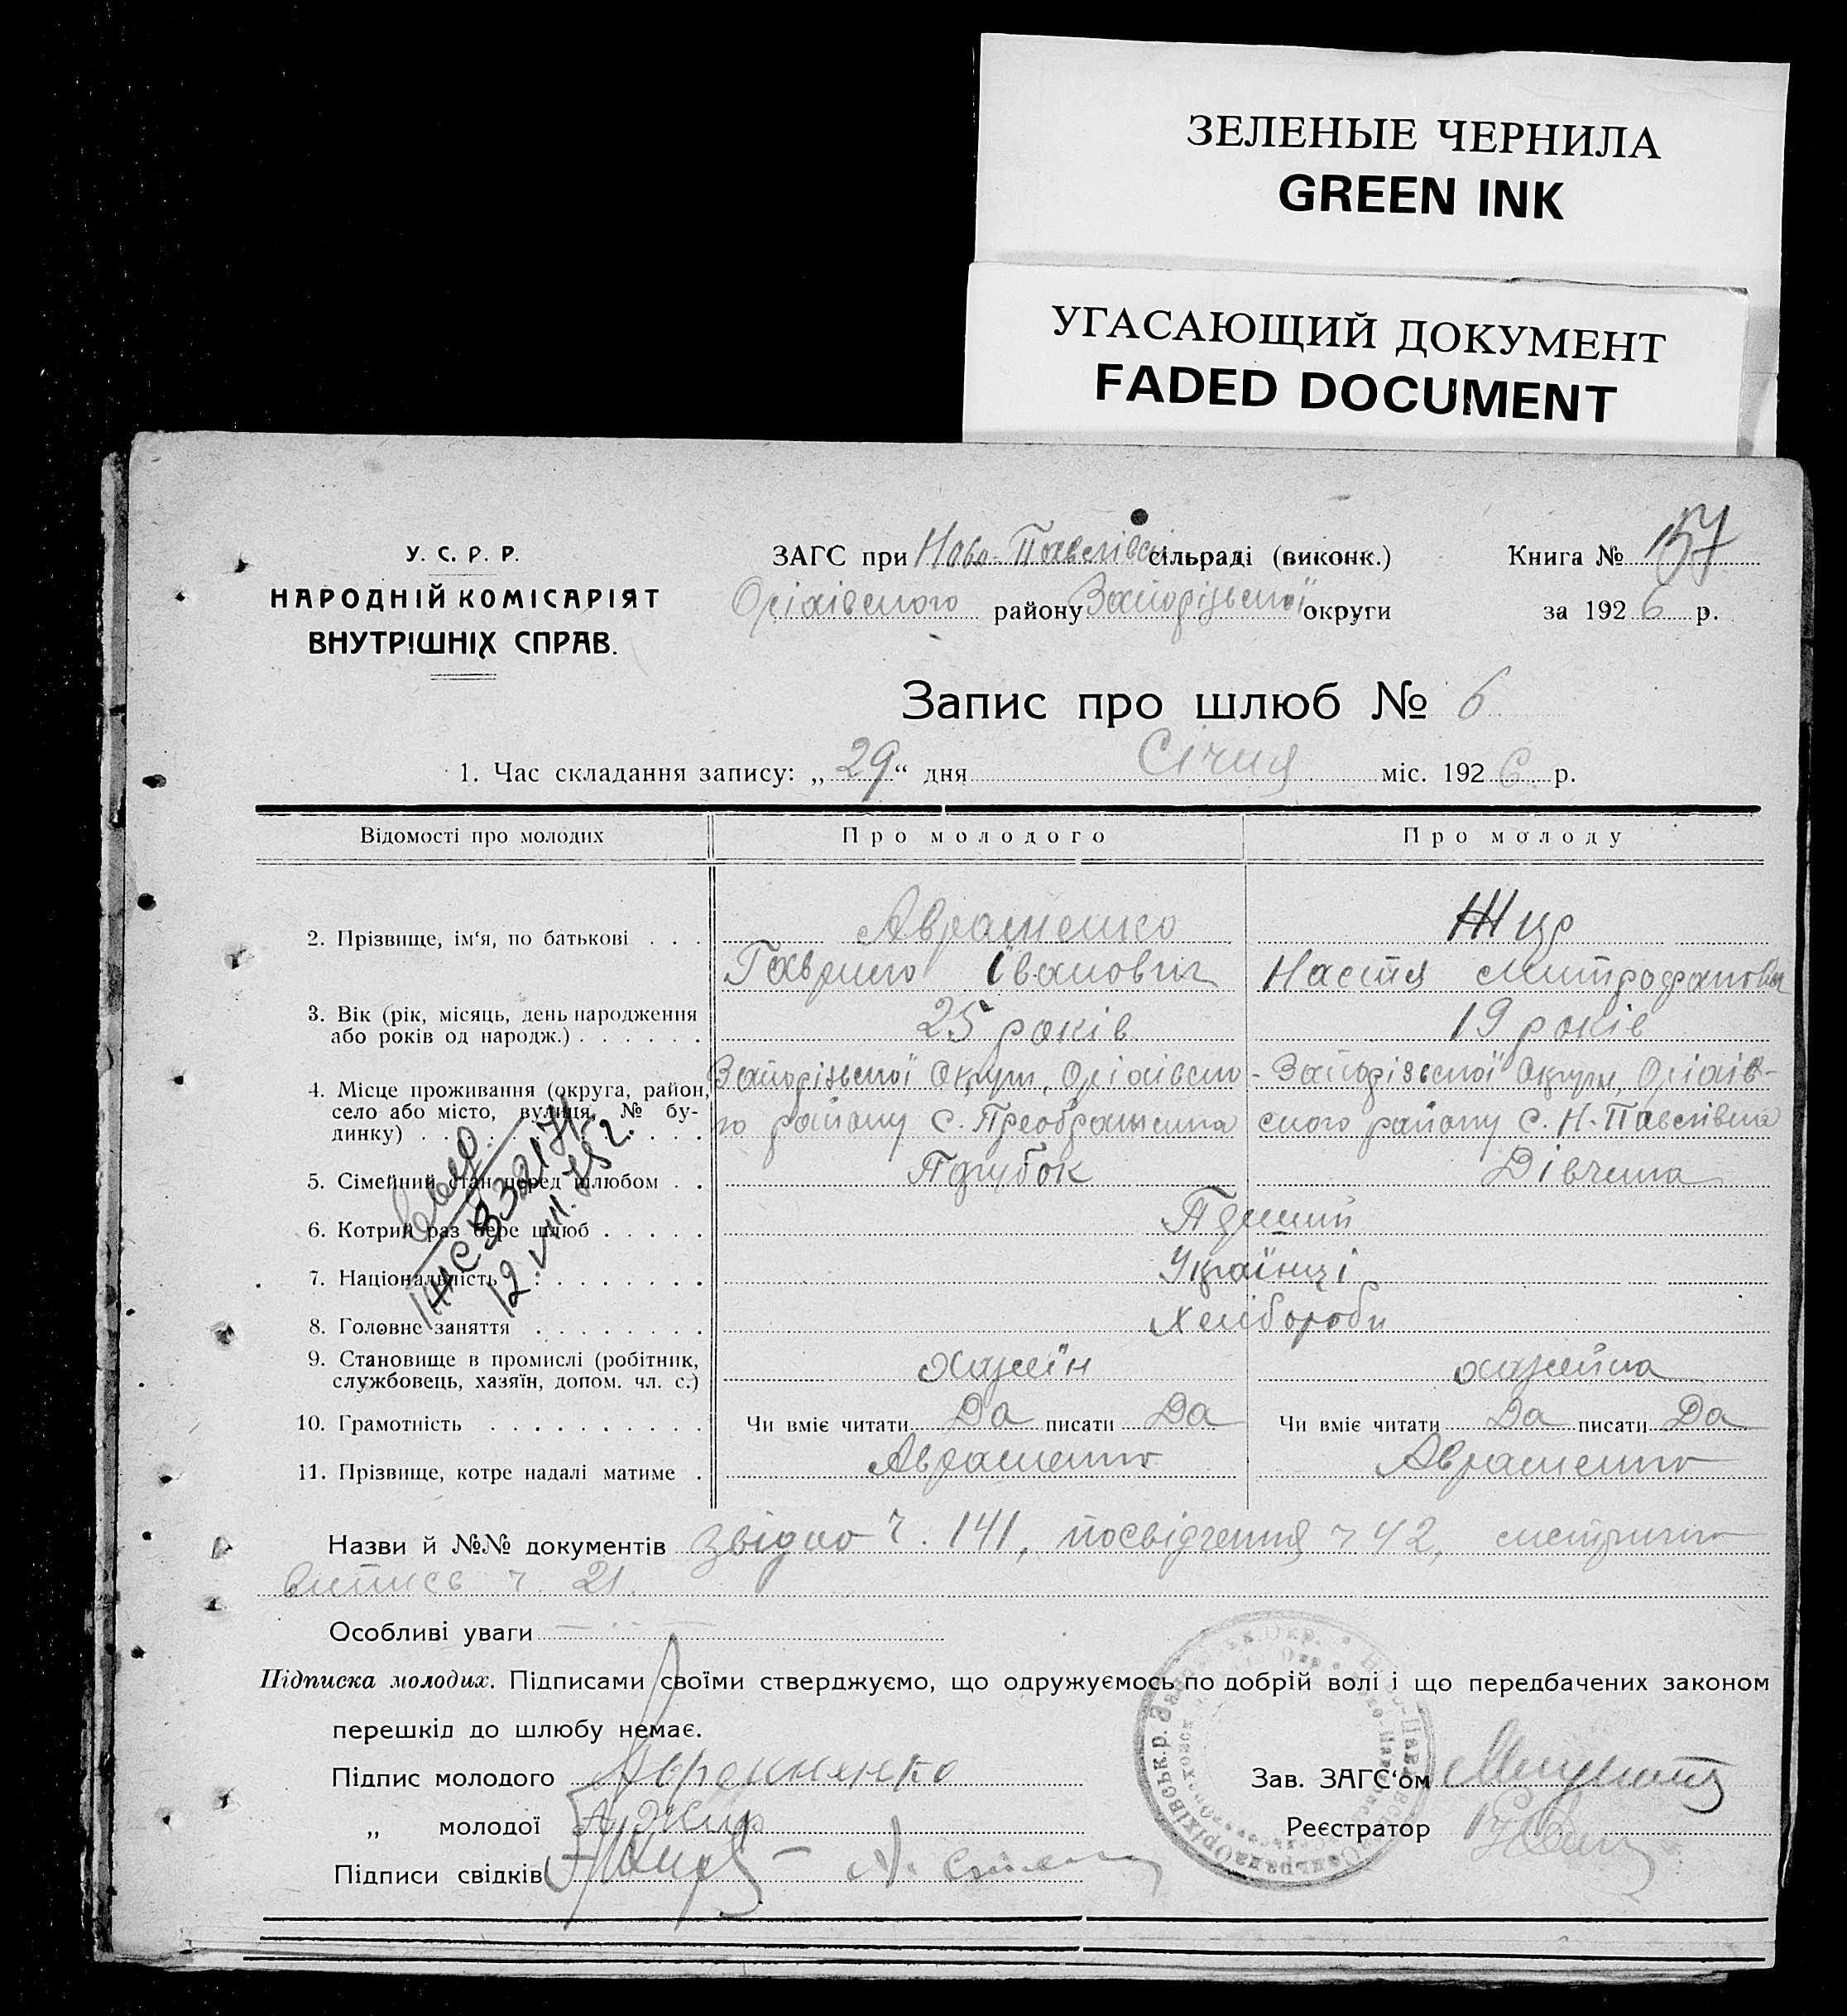 ЗЕЛЕНЫЕ ЧЕРНИЛА
GREEN INK
УГАСАЮЩИЙ ДОКУМЕНТ
FADED DOCUMENT
У. С. Р. Р.
НАРОДНІЙ КОМІСАРІЯТ
ВНУТРІШНІХ СПРАВ.
ЗАГС при Ново-Павлівській сільраді (виконк.)
Оріхівського району Запорізької округи
Книга № 157
за 1926 р.
Запис про шлюб № 6
1. Час складання запису: „29“ дня Січня міс. 1926 р.
Відомості про молодих Про молодого Про молоду
2. Прізвище, ім‘я, по батькові . . . Авраменко Жир
Гаврило Іванович Настя Митрофановна
3. Вік (рік, місяць, день народження
або років од народж.) . . . . . . 25 років 19 років
4. Місце проживання (округа, район, Запорізької Округи, Оріхівсько- Запорізької Округи, Оріхів-
село або місто, вулиця, № бу- го району С. Преображенка ського району С. Н-Павлівка
динку) . . . . . . . . . . .
5. Сімейний стан перед шлюбом . . Парубок Дівчина
6. Котрий раз бере шлюб . . . . . Перший
7. Національність . . . . . . . . Українці
8. Головне заняття . . . . . . . . Хлібороби
9. Становище в промислі (робітник,
службовець, хазяїн, допом. чл. с.) хазяїн хазяйка
10. Грамотність . . . . . . . . . . Чи вміє читати Да писати Да Чи вміє читати Да писати Да
11. Прізвище, котре надалі матиме . Авраменко Авраменко
12.VIII.
Назви й №№ документів звідка ч. 141, посвідчення ч 42, метрична
випись ч. 21.
Особливі уваги
Підписка молодих. Підписами своїми стверджуємо, що одружуємось по добрій волі і що передбачених законом
перешкід до шлюбу немає.
Підпис молодого Аврамненко
„ молодої А Жир
Підписи свідків
Зав. ЗАГС‘ом
Реєстратор